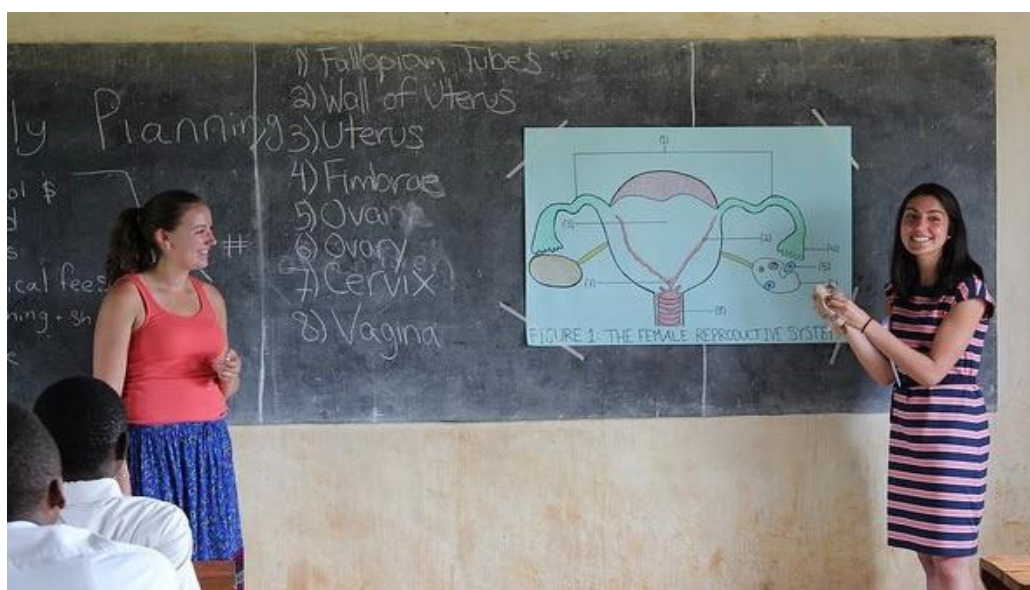 ly Planning
ol $
d
s
ical fees
ning + sh
#
1) Fallopian Tubes
2) Wall of Uterus
3) Uterus
4) Fimbrae
5) Ova
6) Ovary
7) Cervix
8) Vagina
(1)
(3)
(2)
(4)
(5)
(7)
(8)
FIGURE 1: THE FEMALE REPRODUCTIVE SYSTEM